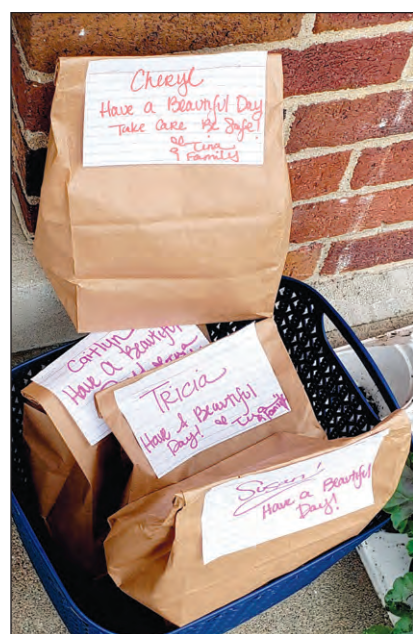 Cheryl
Have a Beautiful Day
Take Care Be Safe!
Tina
& Family
Caitlyn
Have a Beautiful
Day
Tricia
Have A Beautiful
Day! Tina
& Family
Susan!
Have a Beautiful
Day!